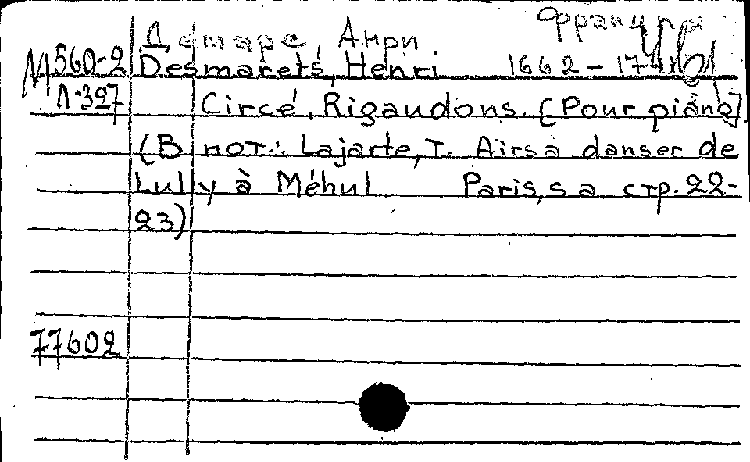 Демаре, Анри
М560-2 Desmarets, Henri 1662-1741
Л-397 Circé, Rigaudons. [Pour piano]
(В нот.: Lajarte, T. Airs à danser de
Lully à Méhul Paris, s a стр. 22-
23)
77602